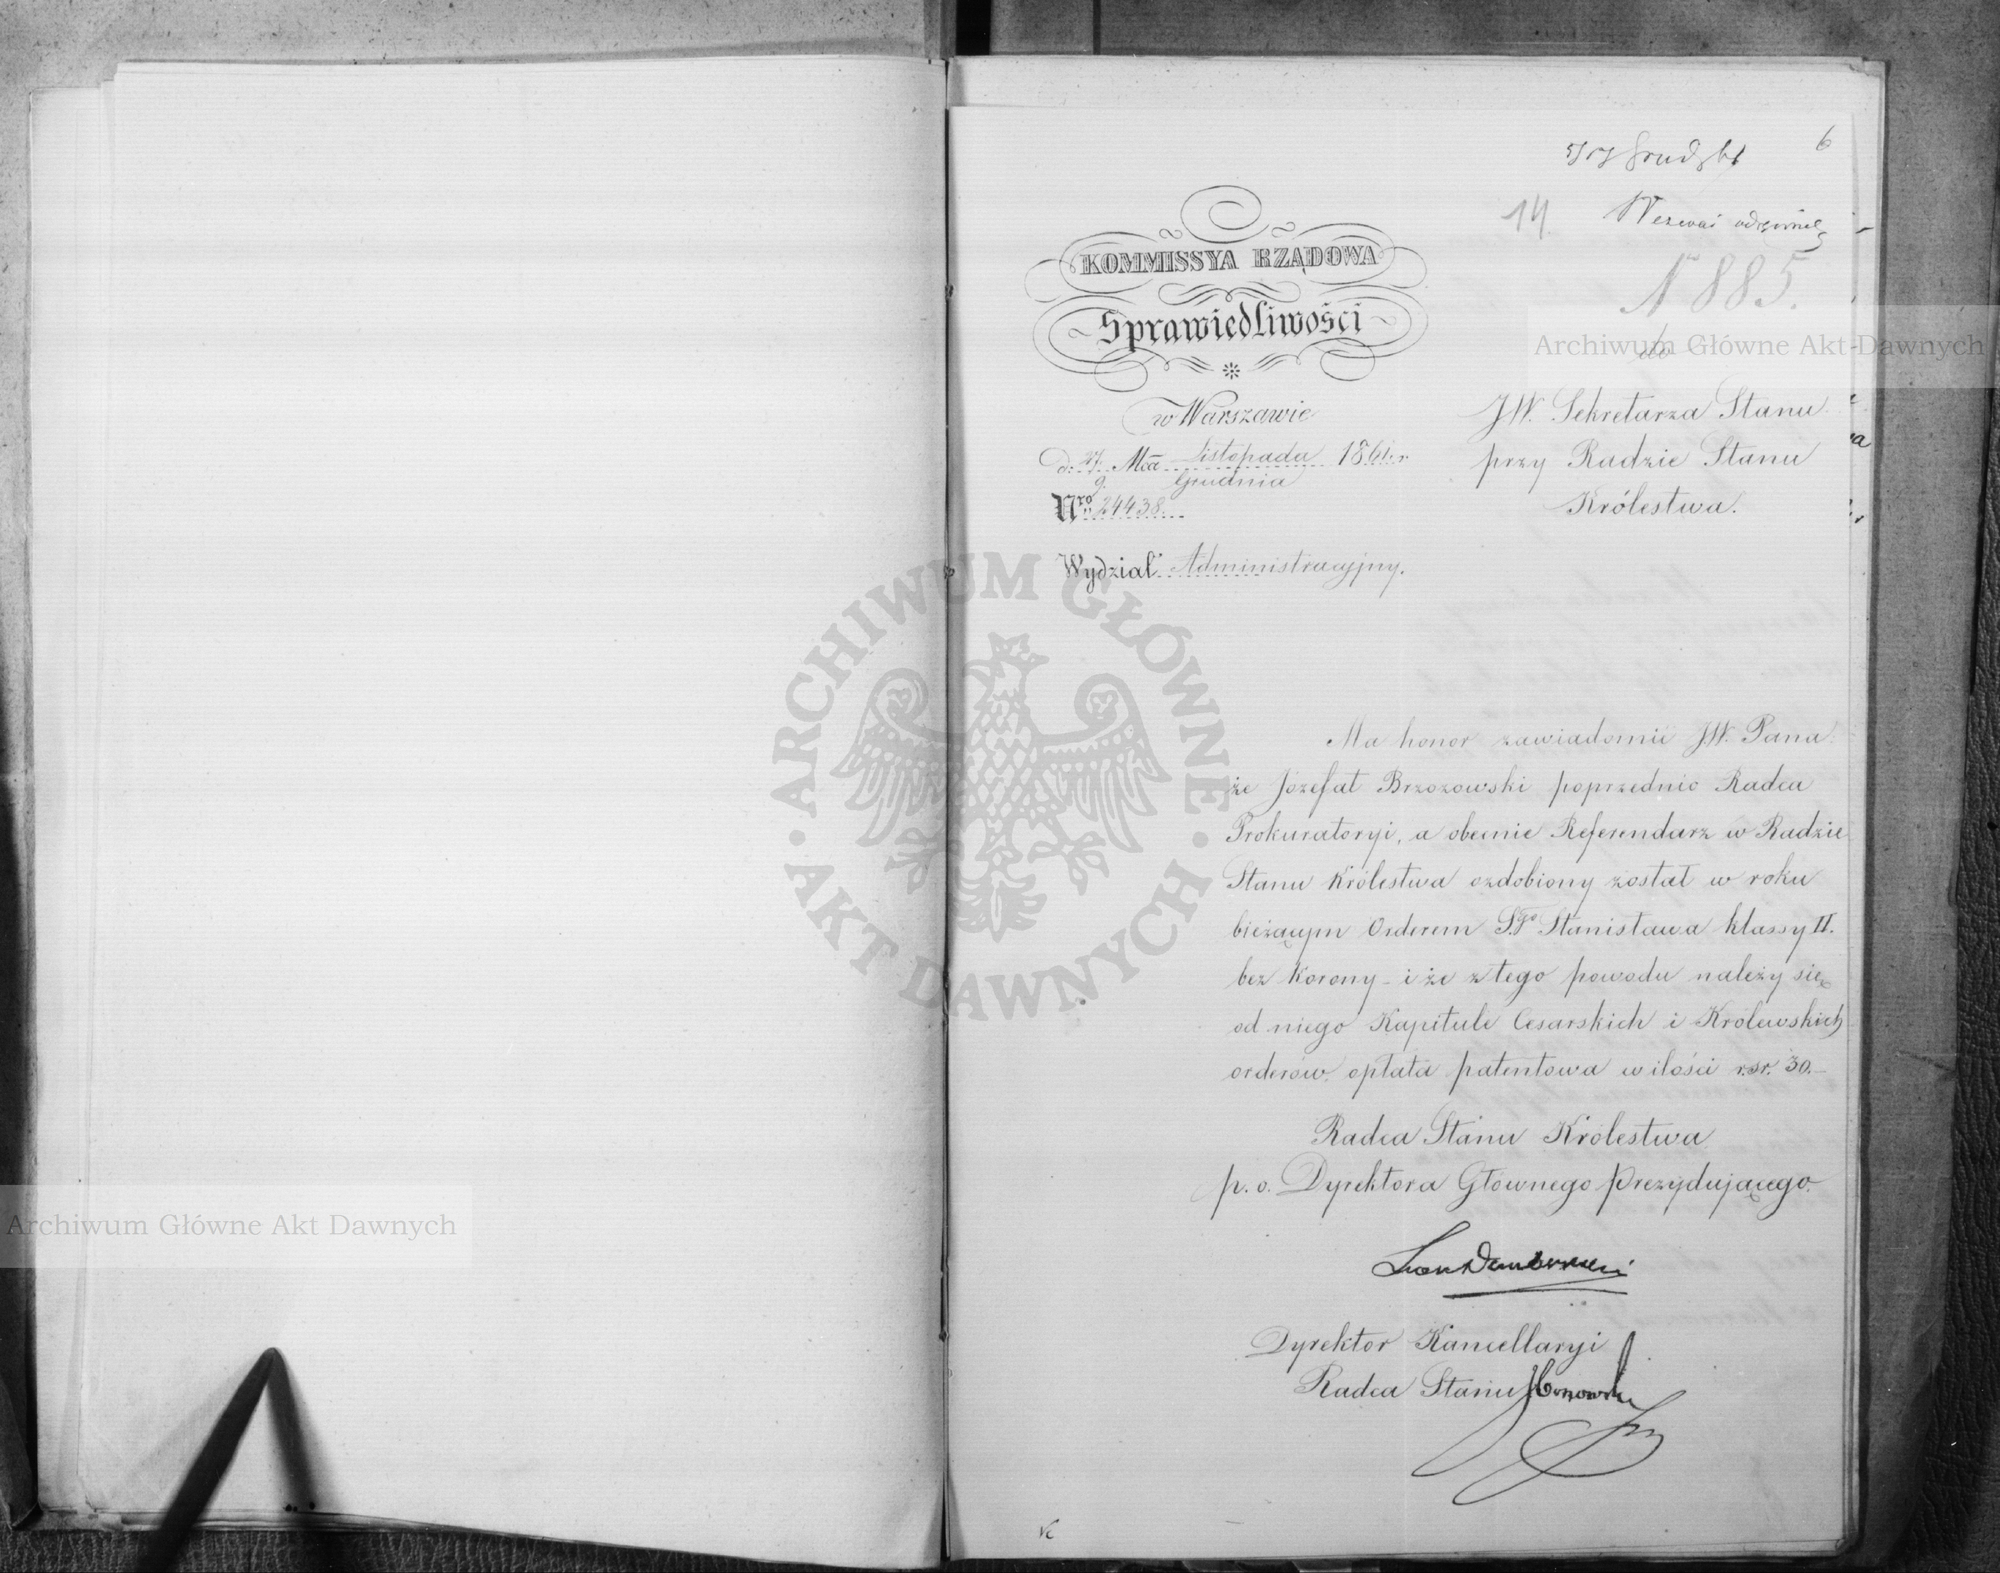 6
5/17 Grud 61
14.
Wezwać odezwie
N 885.
KOMMISSYA RZĄDOWA
Sprawiedliwości
w Warszawie
d: 27. Mca Listopada 1861. r.
9. Grudnia
Nro 24438.
Wydział Administracyjny.
do
JW. Sekretarza Stanu
przy Radzie Stanu
Królestwa.
Ma honor zawiadomić JW. Pana
że Józefat Brzozowski poprzednio Radca
Prokuratoryi, a obecnie Referendarz w Radzie
Stanu Królestwa ozdobiony został w roku
bieżącym Orderem S.go Stanisława klassy II.
bez Korony - i że z tego powodu należy się
od niego Kapitule Cesarskich i Królewskich
orderów, opłata patentowa w ilości r.sr. 30.-
Radca Stanu Królestwa
p. o. Dyrektora Głównego Prezydującego.
Dembowski
Dyrektor Kancellaryi
Radca Stanu
Archiwum Główne Akt Dawnych
Archiwum Główne Akt Dawnych
ARCHIWUM GŁÓWNE · AKT DAWNYCH ·